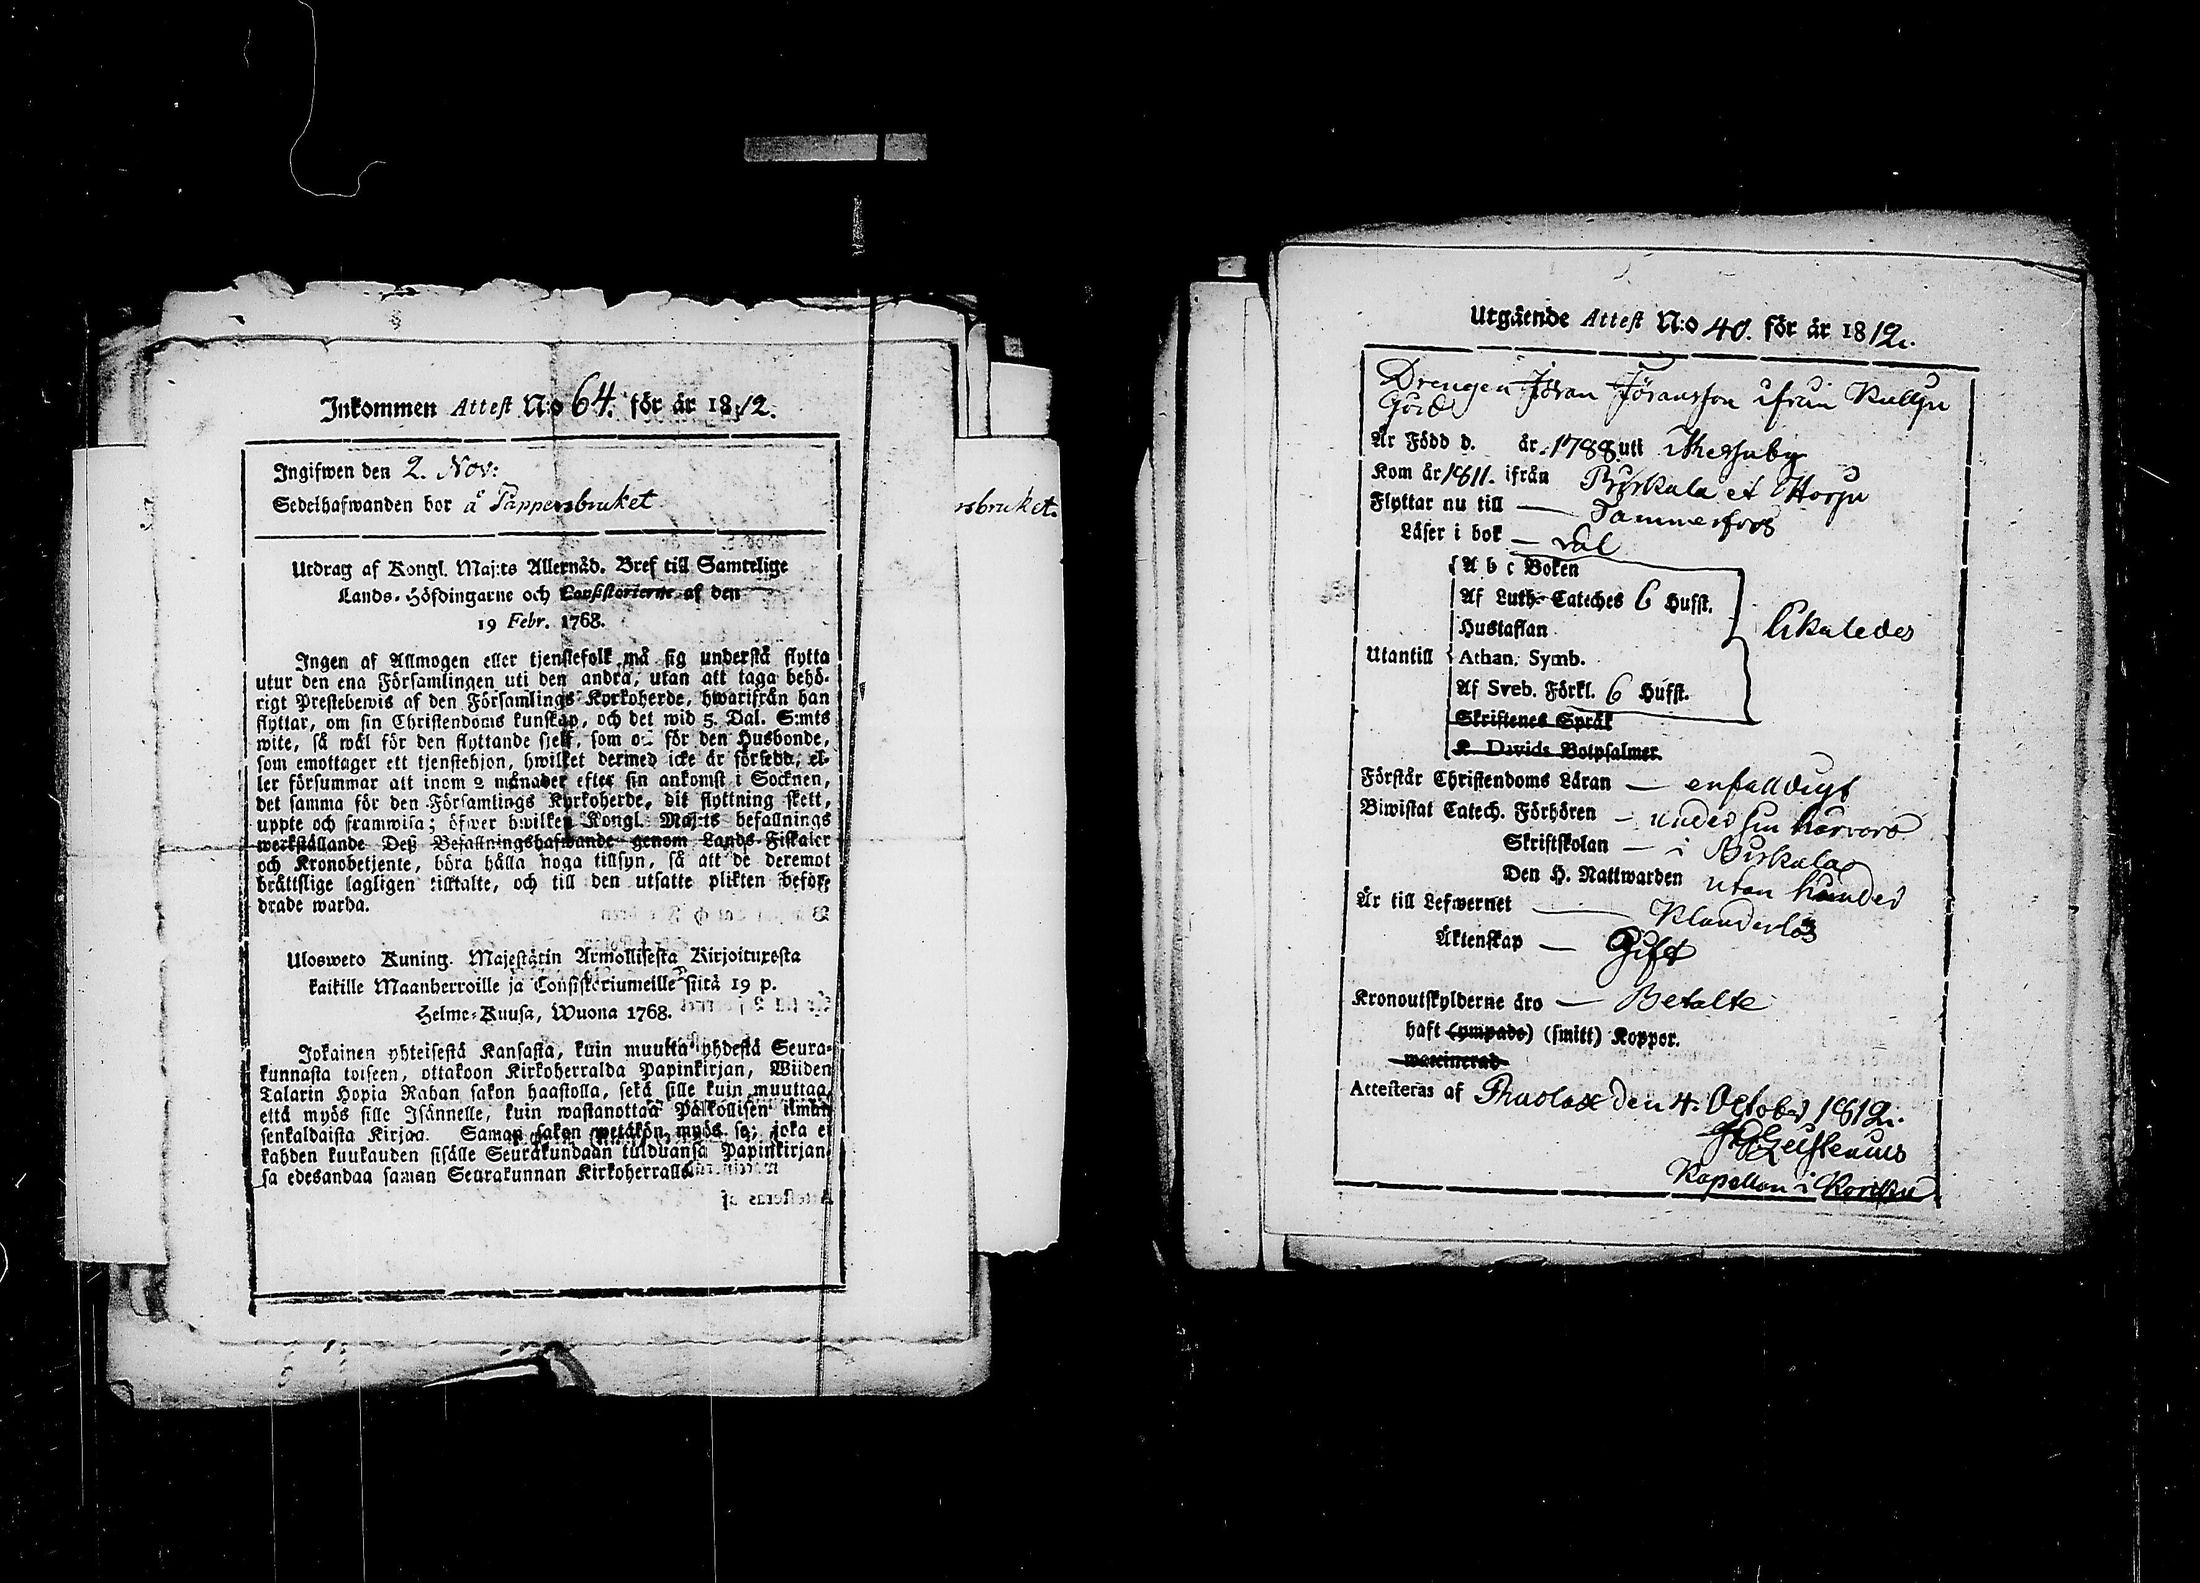 Inkommen Attest N:o 64. för år 1812.
Ingifwen den 2. Nov:
Sedelhafwanden bor å Pappersbruket
Utdrag af Kongl. Maj:ts Allernåd. Bref till Samtelige
Lands-Höfdingarne och Consistorierne af den
19 Febr. 1768.
Ingen af Allmogen eller tjenstefolk må sig understå flytta
utur den ena Församlingen uti den andra, utan att taga behö-
rigt Prestebewis af den Församlings Kyrkoherde, hwarifrån han
flyttar, om sin Christendoms kunskap, och det wid 5. Dal. S:mts
wite, så wäl för den flyttande sjelf, som ock för den Husbonde,
som emottager ett tjenstehjon, hwilket dermed icke är försedd, el-
ler försummar att inom 2 månader efter sin ankomst i Socknen,
det samma för den Församlings Kyrkoherde, dit flyttning skett,
uppte och framwisa; öfwer hwilken Kongl. Maj:ts befallnings
werkställande Deß Befallningshafwande genom Lands-Fiskaler
och Kronobetjente, böra hålla noga tillsyn, så att de deremot
bråttslige lagligen tilltalte, och till den utsatte plikten beför-
drade warda.
Ulosweto Kuning. Majestätin Armollisesta Kirjoituxesta
kaikille Maanherroille ja Consistoriumeille siitä 19 p.
Helme-Kuusa, Wuona 1768.
Jokainen yhteisestä Kansasta, kuin muutta yhdestä Seura-
kunnasta toiseen, ottakoon Kirkoherralda Papinkirjan, Wiiden
Talarin Hopia Rahan sakon haastolla, sekä sille kuin muuttaa,
että myös sille Isännelle, kuin wastanottaa Palkollisen ilman
senkaldaista Kirjaa. Saman sakon wetäkön myös se, joka ei
kahden kuukauden sisälle Seurakundaan tulduansa Papinkirjan-
sa edesandaa saman Seurakunnan Kirkoherralle.
rsbruket.
Utgående Attest N:o 40. för år 1812.
Drengen Jöran Jöransson ifrån Kullju
Gård
Är Född d. år 1788 uti Mesuby
Kom år 1811. ifrån Birkala et Horju
Flyttar nu till — Tammerfors
Läser i bok — väl
A b c Boken
Af Luth. Cateches 6 Hufst.
Hustaflan
likaledes
Utantill
Athan. Symb.
Af Sveb. Förkl. 6 Hufst.
Skriftenes Språk
K. Davids Botpsalmer.
Förstår Christendoms Läran — enfalldigt
Biwistat Catech. Förhören — under sin härvaro
Skriftskolan — i Birkala
Den H. Nattwarden utan hinder
Är till Lefwernet — Klanderlös
Äktenskap — Gift
Kronoutskylderne äro — Betalte
haft (ympade) (smitt) Koppor.
waccinerad
Attesteras af den 4. October 1812.
Kapellan i